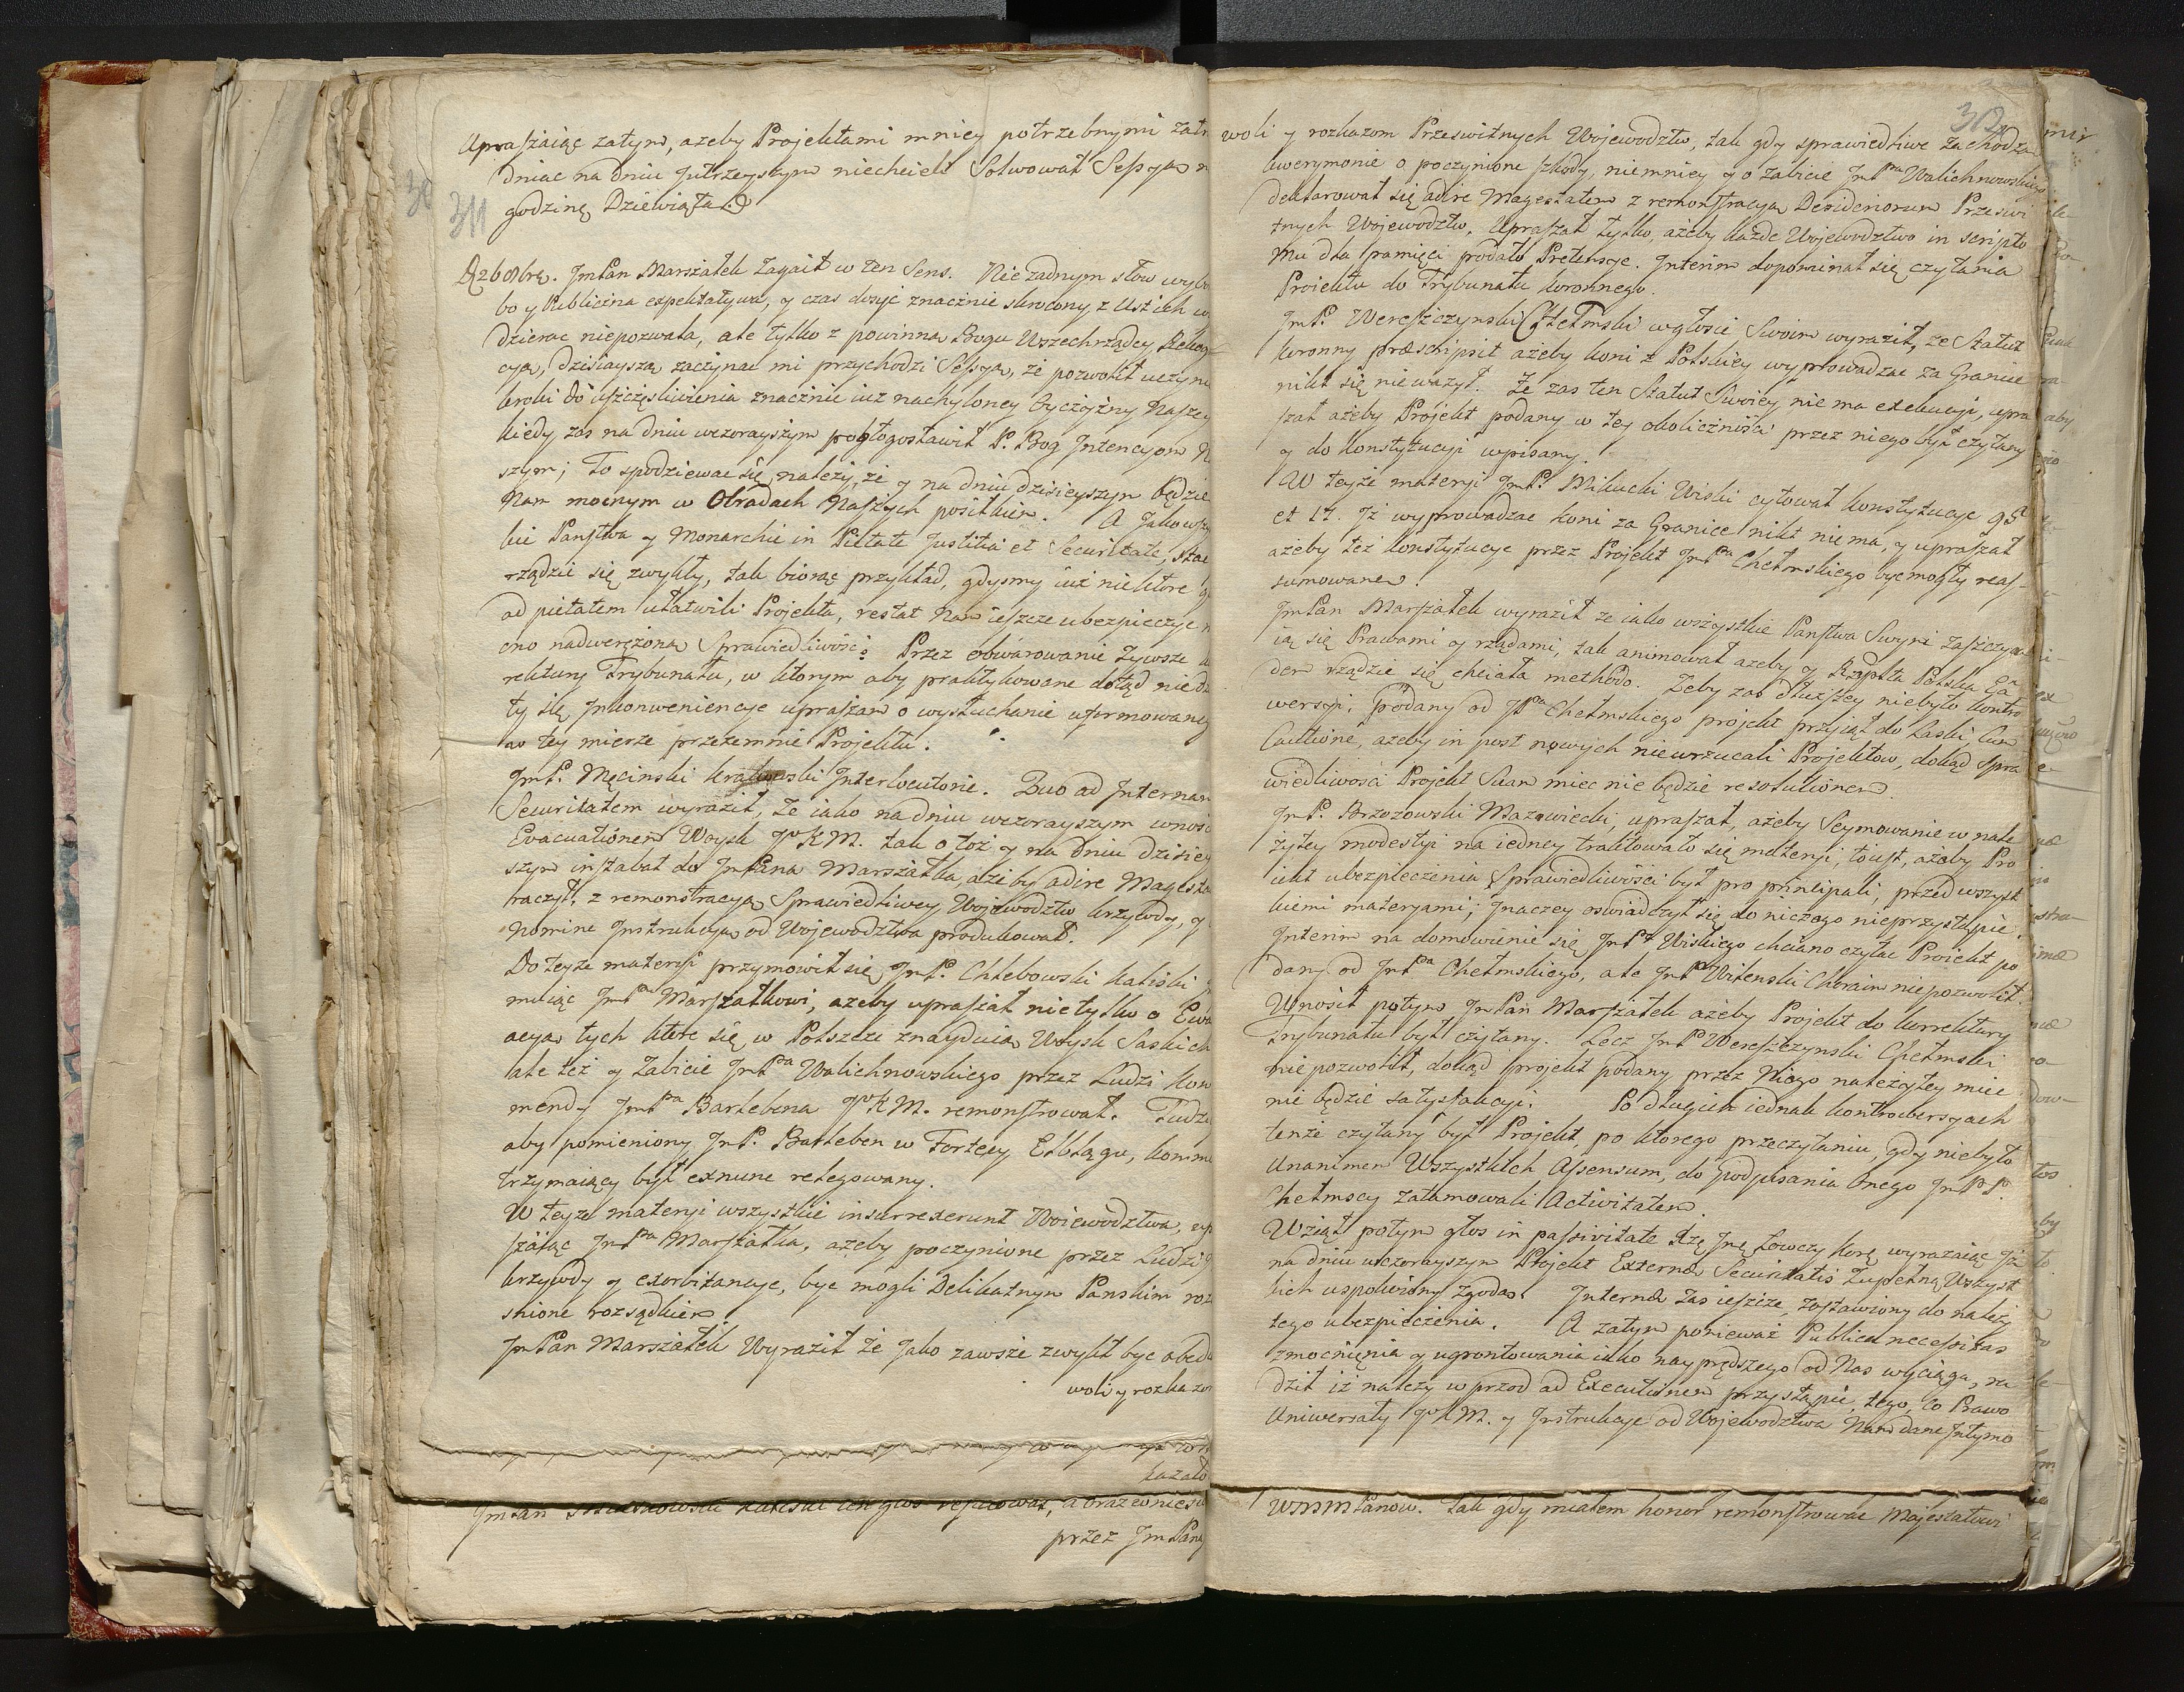 Upraſzaiąc zatym, ażeby Projektami mniey potrzebnymi zatr
dniac na dniu Jutrzeyszym niechcieli Solwował Seſsyą n
godzinę Dziewiątą.
311
D. 26 8bra. JmPan Marszałek Zagaił w ten Sens. Nie żadnym słow wybo
bo y Publiczna expektatywa, y czas dosyć znacznie skrocony z Ust ich w
dzierac niepozwala, ale tylko z powinną Bogu Wszechrządcy Rekog
cyą, dzisiayszą zaczynac mi przychodzi Seſsyą, że pozwolił uczyni
kroki do uſzczęsliwienia znacznie iuz nachyloney Oyczyzny Naszey
kiedy zas na dniu wczorayszym pobłogosławił P. Bog Intencyom N
szym; To spodziewac się należy, że y na dniu dzisieyszym będzie
Nam mocnym w Obradach Naſzych posiłkiem. A Jako wszy
kie Panſtwa y Monarchie in Pietate Justitia et Securitate, stac
rządzic się zwykły, tak biorąc przykład, gdysmy iuż niektore q
ad pietatem ułatwili Projekta, restat Nam ieſzcze ubezpieczyc m
cno nadwerężoną Sprawiedliwość. Przez obwarowanie żywsze k
rektury Trybunału, w ktorym aby praktykowane dotąd niedz
ły się Inkonweniencye upraſzam o wysłuchanie uformowaney
w tey mierze przezemnie Projektu.
JmP. Męcinski Krakowski Interlocutorie. Quo ad Internam
Securitatem wyraził, Ze iako na dniu wczorayszym wnosił
Evacuationem Woysk JoKM. tak o toż y na dniu dzisiey
szym inſtabat do JmPana Marszałka, ażeby adire Magesta
raczył, z remonstracyą Sprawiedliwey Wojewodztw krzywdy, y
Nomine Instrukcyą od Wojewodztwa produkował.
Do teyze materyi przymowił się JmP. Chlebowski Kaliski
mniąc JmPa Marſzałkowi, azeby upraſzał nietylko o Ewa
acyą tych ktore się w Polszcze znayduią Woysk Saskich
ale też y Zabicie JmPa Walichnowskiego przez Ludzi Kom
mendy JmPa Barlebena JoKM. remonſtrował. Tudzi
aby pomieniony JmP. Barleben w Fortecy Elblągu, komme
trzymaiący był exnunc relegowany.
W teyze materyi wszystkie insurrexerunt Woiewodztwa, up
ſzaiąc JmPa Marſzałka, ażeby poczynione przez Ludzi J
krzywdy y exorbitancye, byc mogli Delikatnym Panskim roz
snione rozsądkiem.
JmPan Marszałek Wyraził że Jako zawsze zwykł byc obed
woli y rozkazom
kazało
przez JmPana
312
woli y rozkazom Przeswitnych Wojewodztw, tak gdy sprawiedliwe zachodzą
kwerymonie o poczynione ſzkody, niemniey y o zabicie JmPa Walichnowskiego
deklarował się adire Magestatem z remonſtracyą Desideriorum Przeswi
tnych Wojewodztw. Upraſzał tylko, ażeby każde Wojewodztwo in scripto
mu dla pamięci podało Pretensye. Interim dopominał się czytania
Proiektu do Trybunału Koronnego.
JmP. Wereſzczynski Chełmski w głosie Swoim wyraził, ze Statut
Koronny præscripsit ażeby koni z Polskiey wyprowadzac za Granice
nikt się nieważył. Że zas ten Statut Swoiey nie ma exekucyi, upra
ſzał ażeby Projekt podany w tey okoliczności przez niego był czytany
y do Konstytucyi wpisany.
W teyże materyi JmP. Mikucki Wiski cytował Konstytucye 95
et 17. Jż wyprowadzac koni za Granice nikt nie ma, y upraſzał
ażeby też Konstytucye przez Projekt JmPa Chełmskiego byc mogły reaſ-
sumowane.
JmPan Marſzałek wyraził ze iako wszystkie Panſtwa Swymi zaſzczyca
ią się Prawami y rządami, tak animował azeby y Rzpplta Polska Ea
dem rządzic się chciała methodo. Żeby zas dłużſzey niebyło kontro
wersyi, Podany od JPa Chełmskiego projekt przyiął do Laski, Cum
Cautione, ażeby in post nowych niewrzucali Projektow, dokąd Spra
wiedliwości Projekt Suam miec nie będzie resolutionem.
JmP. Brzozowski Mazowiecki, upraſzał, ażeby Seymowanie w nale
żytey modestyi na iedney traktowało się materyi, to iest, ażeby Pro
iekt ubezpieczenia Sprawiedliwości był pro principali, przed wszyst
kiemi materyami; Jnaczey oswiadczył się do niczego nieprzystąpic.
Interim na domowienie się JmPa Wiskiego chciano czytac Proiekt po
dany od JmPa Chełmskiego, ale JmP Witenski Choraży niepozwolił.
Unosił potym JmPan Marſzałek ażeby Projekt do korrektury
Trybunału był czytany. Lecz JmP Wereſzczynski Chełmski
nie pozwolił, dokąd projekt podany przez Niego należytey miec
nie będzie satysfakcyi. Po długich iednak kontrowersyach
tenże czytany był Projekt, po ktorego przeczytaniu, gdy niebyło
Unanimem Wszystkich Aſsensum, do podpisania onego JmPP.
Chełmscy zatamowali Activitatem.
Wziął potym głos in paſsivitate Xżę Jmę Łowczy Krę wyrazaiąc Jż
na dniu wczorayszym Projekt Externæ Securitatis Zupełną Wszyst
kich uspokoiony zgodą. Internæ zas ieſzcze zostawiony do należy
tego ubezpieczenia. A zatym ponieważ Publica neceſsitas
zmocnięnia y ugrontowania iako nayprędszego od Nas wyciąga, ra
dził iż należy wprzod ad Executionem przystąpic, tego, co Prawo
Uniwersały JoKM. y Instrukcye od Wojewodztwa Nam dane Jntymo
WMMPanow. Tak gdy miałem honor remonſtrowac Majestatowi